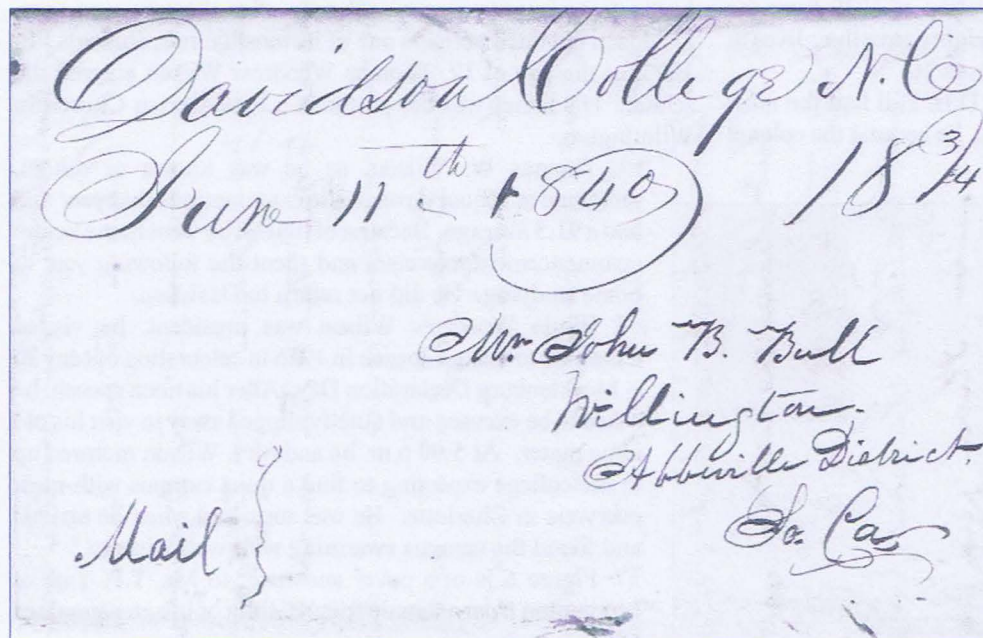 Davidson College N.C.
June 11th 1840
18 3/4
Mr John B. Bull
Willington
Abbeville District.
So Ca
Mail